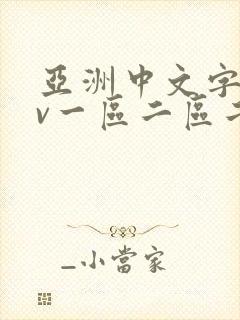 亞洲中文字
v一區二區
_小當家